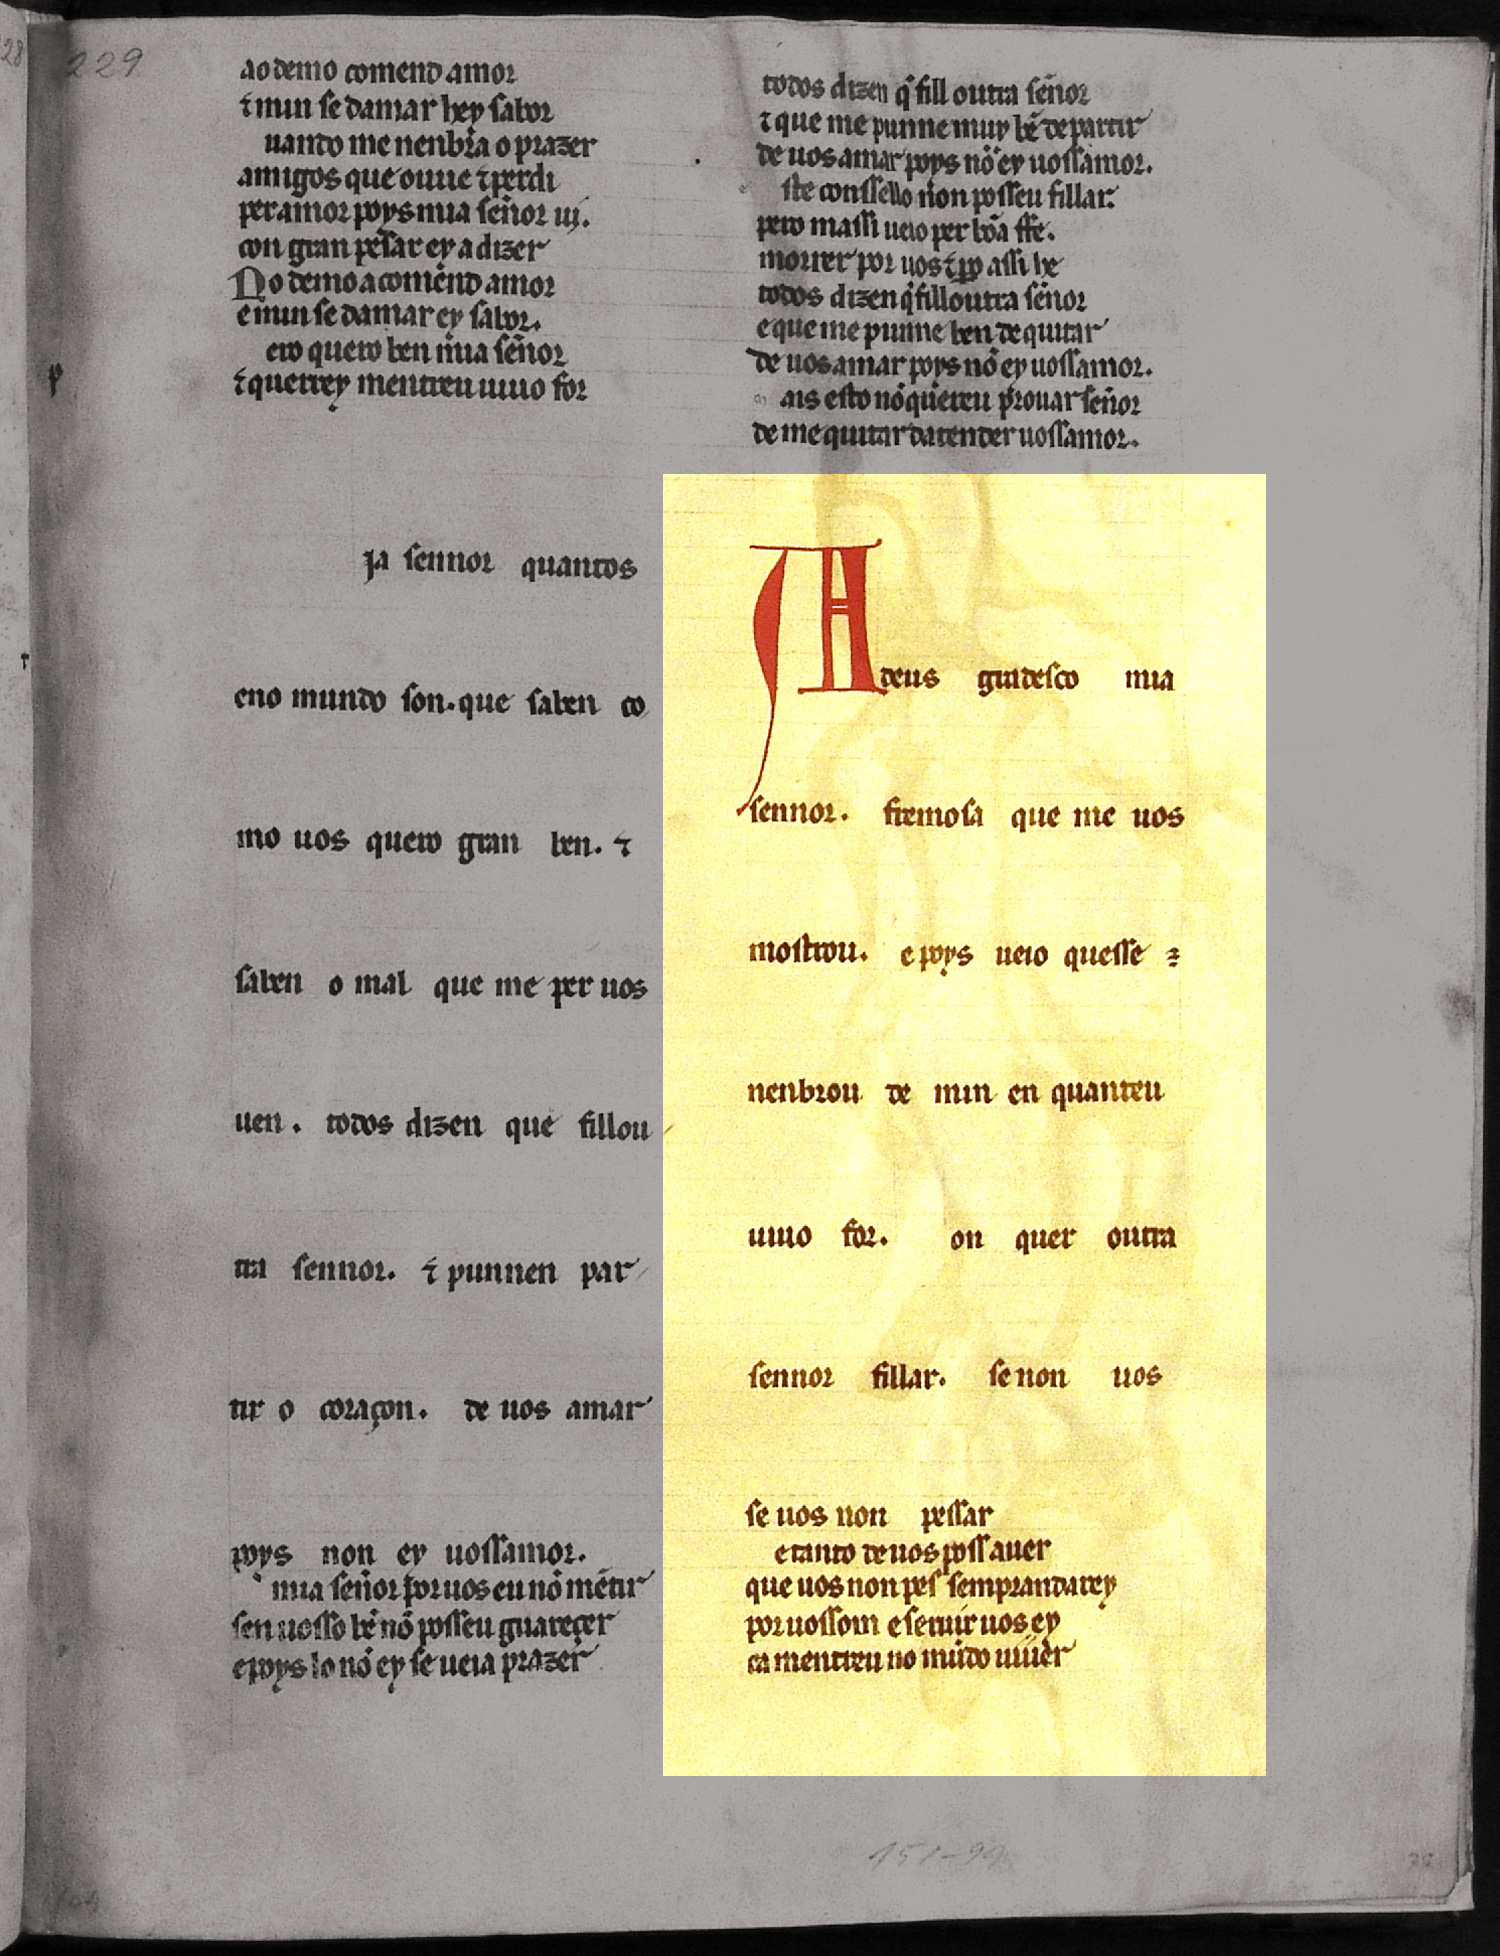 229
ao demo comend amor
⁊ mun se damar hey sabor
uando me nenbra o prazer
amigos que ouue ⁊ perdi
per amor poys mia señor ui.
con gran pesar ey a dizer
No demo acomend amor
e mun se damar ey sabor.
ero quero ben mia señor
⁊ querrey mentreu uiuo for
Ja sennor quantos
eno mundo son. que saben co
mo uos quero gran ben. ⁊
saben o mal que me per uos
uen. todos dizen que fillou
tra sennor. ⁊ punnen par
tir o coraçon. de uos amar
poys non ey uossamor.
mia señor por uos eu nõ mẽtir
sen uosso bẽ nõ posseu guareçer
e poys lo nõ ey se ueia prazer
todos dizen q̃ fill outra señor
⁊ que me punne muy bẽ de partir
de uos amar poys nõ ey uossamor.
ste conssello non posseu fillar.
pero massi ueio per bõa ffe.
morrer por uos ⁊ assi he
todos dizen q̃ fill outra señor
e que me punne ben de quitar
de uos amar poys nõ ey uossamor.
ais esto nõ quereu prouar señor
de me quitar datender uossamor.
A deus gradesco mia
sennor. fremosa que me uos
mostrou. e poys ueio quesse
nenbrou de min en quanteu
uiuo for. on quer outra
sennor fillar. se non uos
se uos non pessar
e tanto de uos poss auer
que uos non pes semprandarey
por uossom e seruir uos ey
ca mentreu no mũdo uiuer
151-99